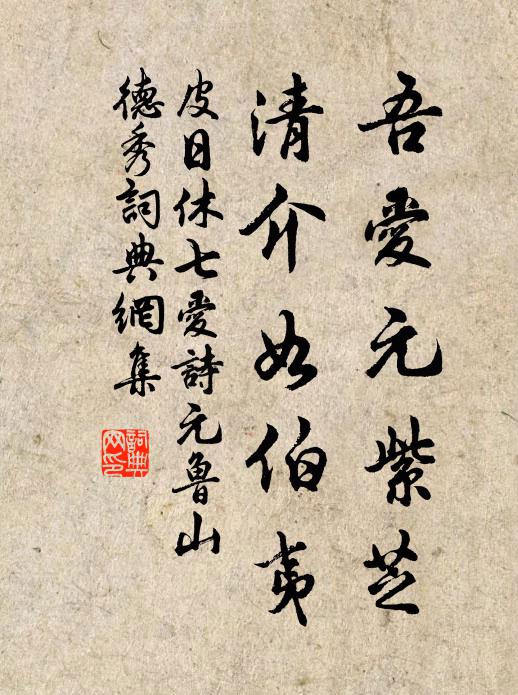 吾愛元紫芝
清介如伯夷
皮日休七愛詩元魯山
德秀詞典網集
詞典網印